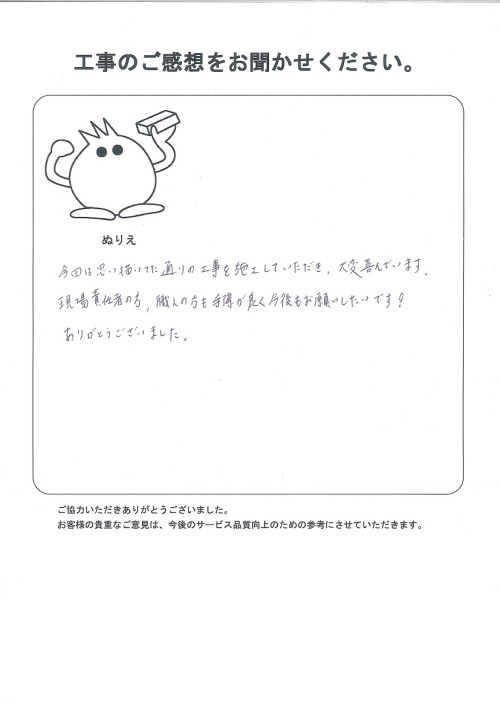 工事のご感想をお聞かせください。
ぬりえ
今回は思い描いてた通りの工事を施工していただき、大変喜んでいます。
現場責任者の方、職人の方も手際が良く今後もお願いしたいです!
ありがとうございました。
ご協力いただきありがとうございました。
お客様の貴重なご意見は、今後のサービス品質向上のための参考にさせていただきます。